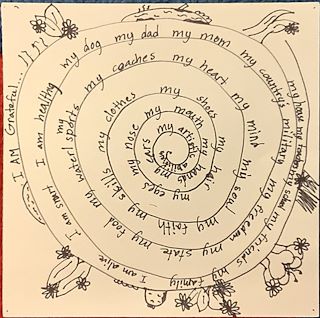 I AM Grateful...
I am healthy my dog my dad my mom my country's military
my freedom my friends my family I am alive I am smart
my water sports my coaches my heart my mind
my soul my faith my state my food
my skills my clothes my shoes
my hair my hands my eyes
my nose my mouth
my artistic ability
my ears